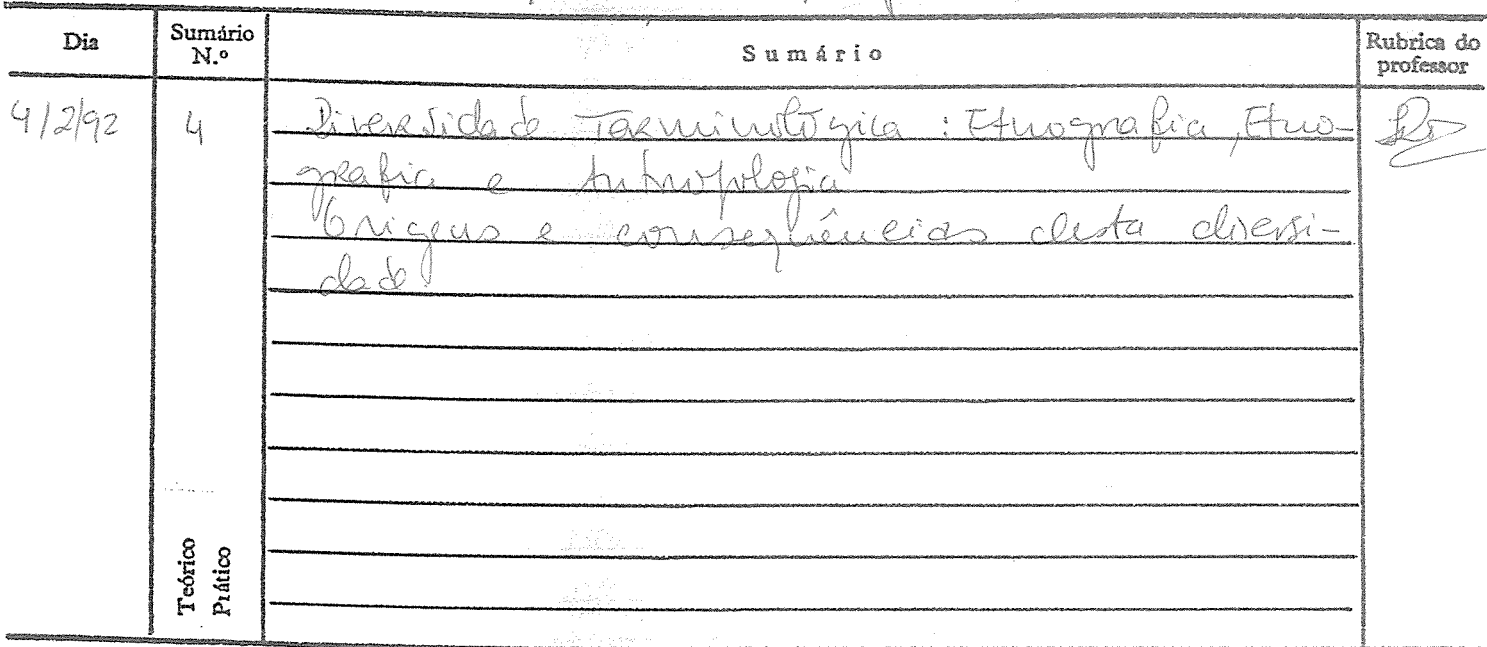 Dia Sumário N.º Sumário Rubrica do professor
4/2/92 4 Diversidade Terminológica : Etnografia, Etno-
grafia e Antropologia
Origens e consequências desta diversi-
dade.
Teórico
Prático